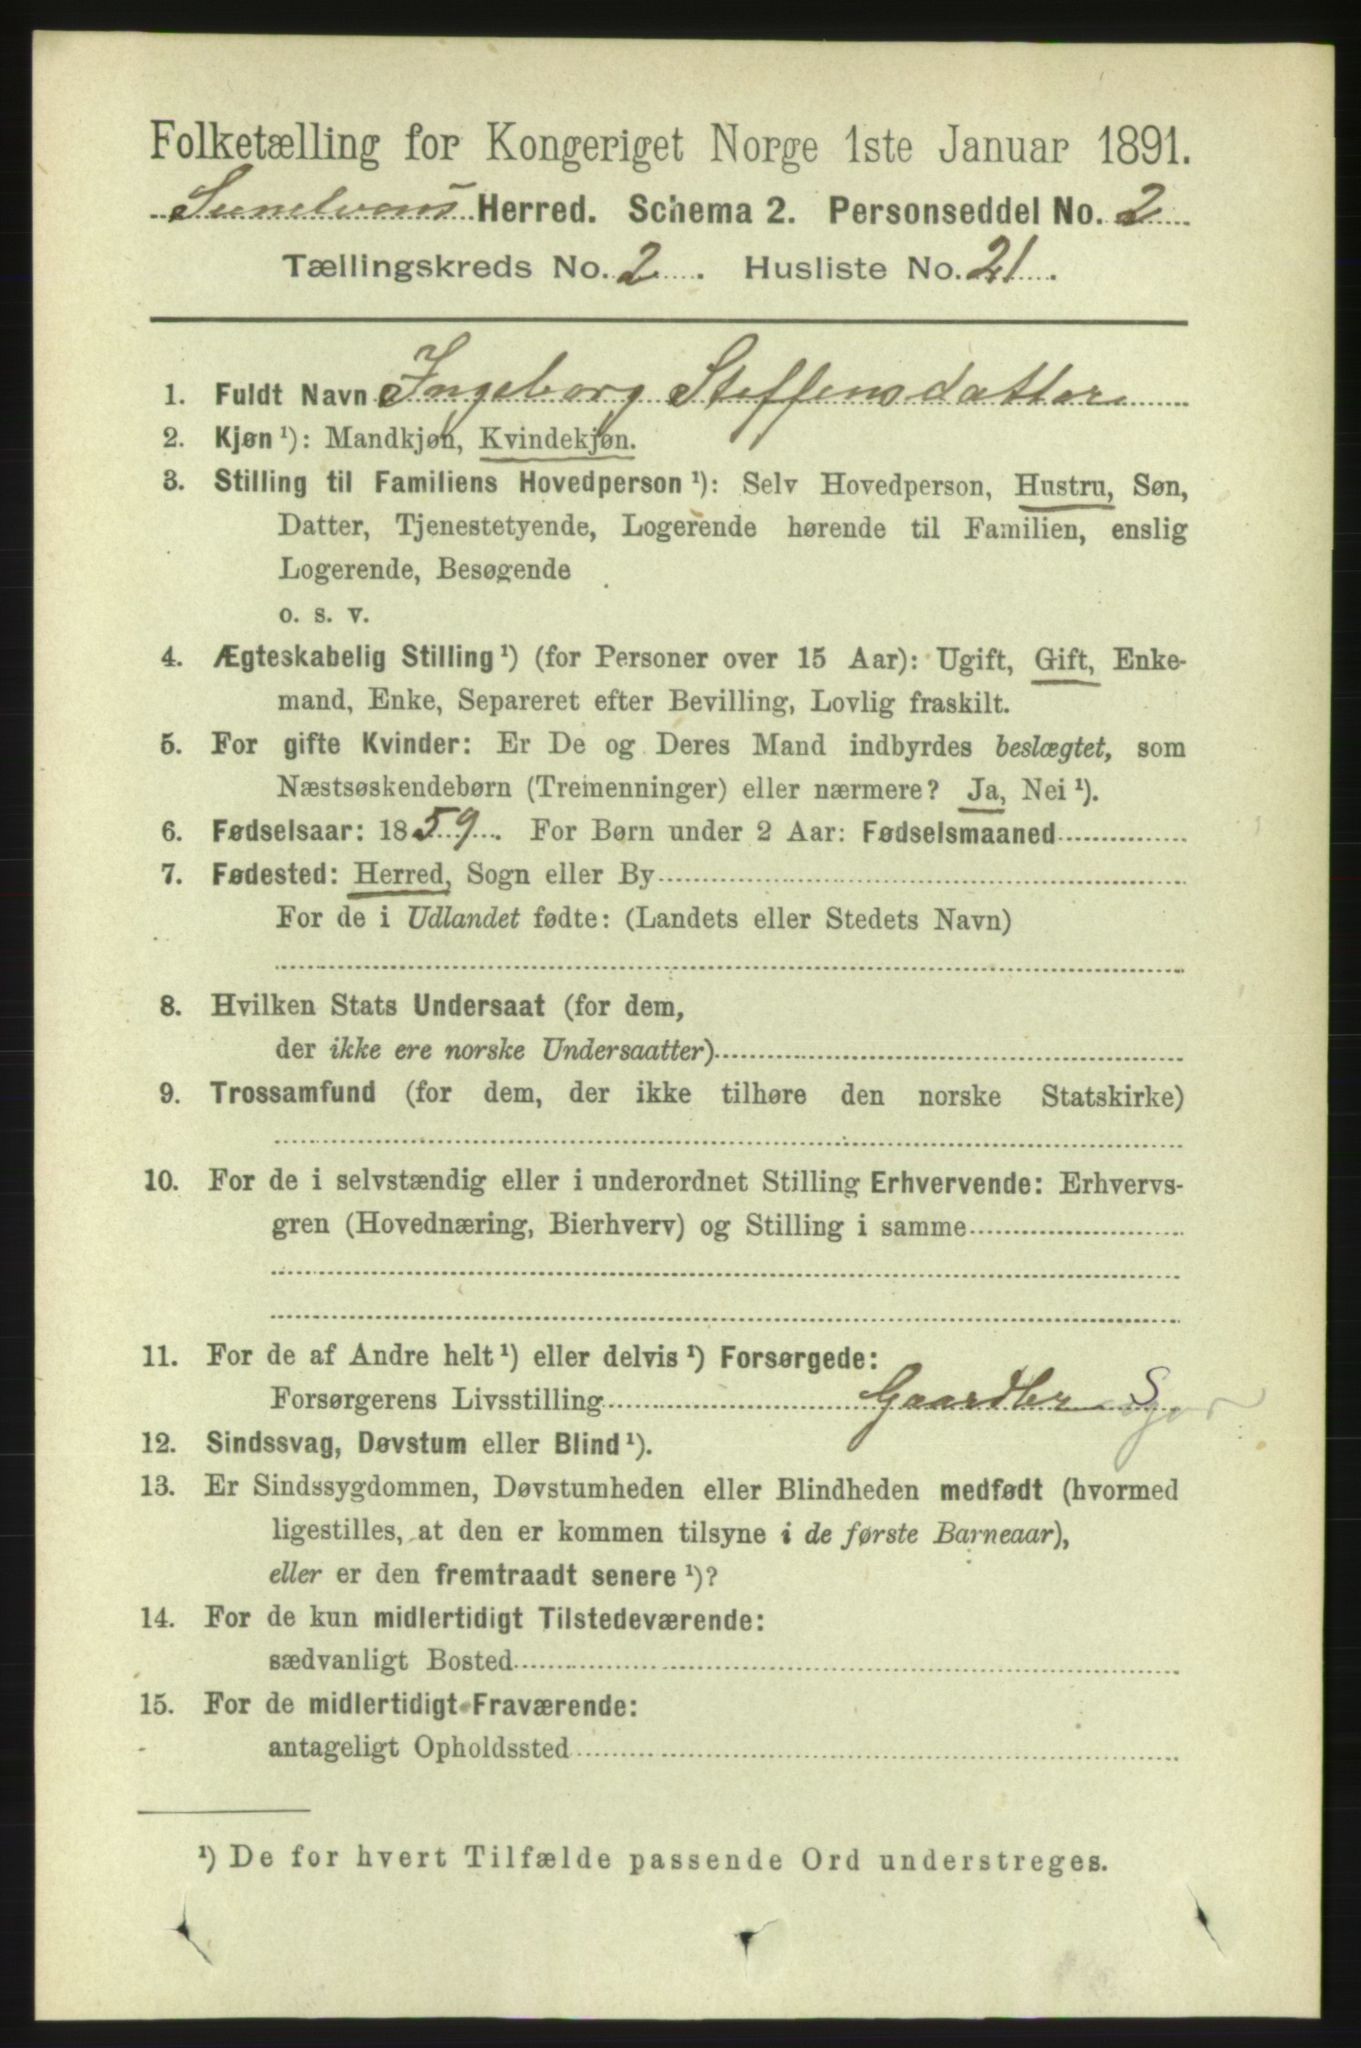 Folketælling for Kongeriget Norge 1ste Januar 1891.
Sunelvens Herred. Schema 2. Personseddel No. 2
Tællingskreds No. 2. Husliste No. 21.
1. Fuldt Navn Ingeborg Steffensdatter
2. Kjøn ¹): Mandkjøn, Kvindekjøn.
3. Stilling til Familiens Hovedperson ¹): Selv Hovedperson, Hustru, Søn,
Datter, Tjenestetyende, Logerende hørende til Familien, enslig
Logerende, Besøgende
o. s. v.
4. Ægteskabelig Stilling ¹) (for Personer over 15 Aar): Ugift, Gift, Enke-
mand, Enke, Separeret efter Bevilling, Lovlig fraskilt.
5. For gifte Kvinder: Er De og Deres Mand indbyrdes beslægtet, som
Næstsøskendebørn (Tremenninger) eller nærmere? Ja, Nei ¹).
6. Fødselsaar: 1859. For Børn under 2 Aar: Fødselsmaaned
7. Fødested: Herred, Sogn eller By
For de i Udlandet fødte: (Landets eller Stedets Navn)
8. Hvilken Stats Undersaat (for dem,
der ikke ere norske Undersaatter)
9. Trossamfund (for dem, der ikke tilhøre den norske Statskirke)
10. For de i selvstændig eller i underordnet Stilling Erhvervende: Erhvervs-
gren (Hovednæring, Bierhverv) og Stilling i samme
11. For de af Andre helt ¹) eller delvis ¹) Forsørgede:
Forsørgerens Livsstilling Gaardbr S
12. Sindssvag, Døvstum eller Blind ¹).
13. Er Sindssygdommen, Døvstumheden eller Blindheden medfødt (hvormed
ligestilles, at den er kommen tilsyne i de første Barneaar),
eller er den fremtraadt senere ¹)?
14. For de kun midlertidigt Tilstedeværende:
sædvanligt Bosted
15. For de midlertidigt Fraværende:
antageligt Opholdssted
¹) De for hvert Tilfælde passende Ord understreges.